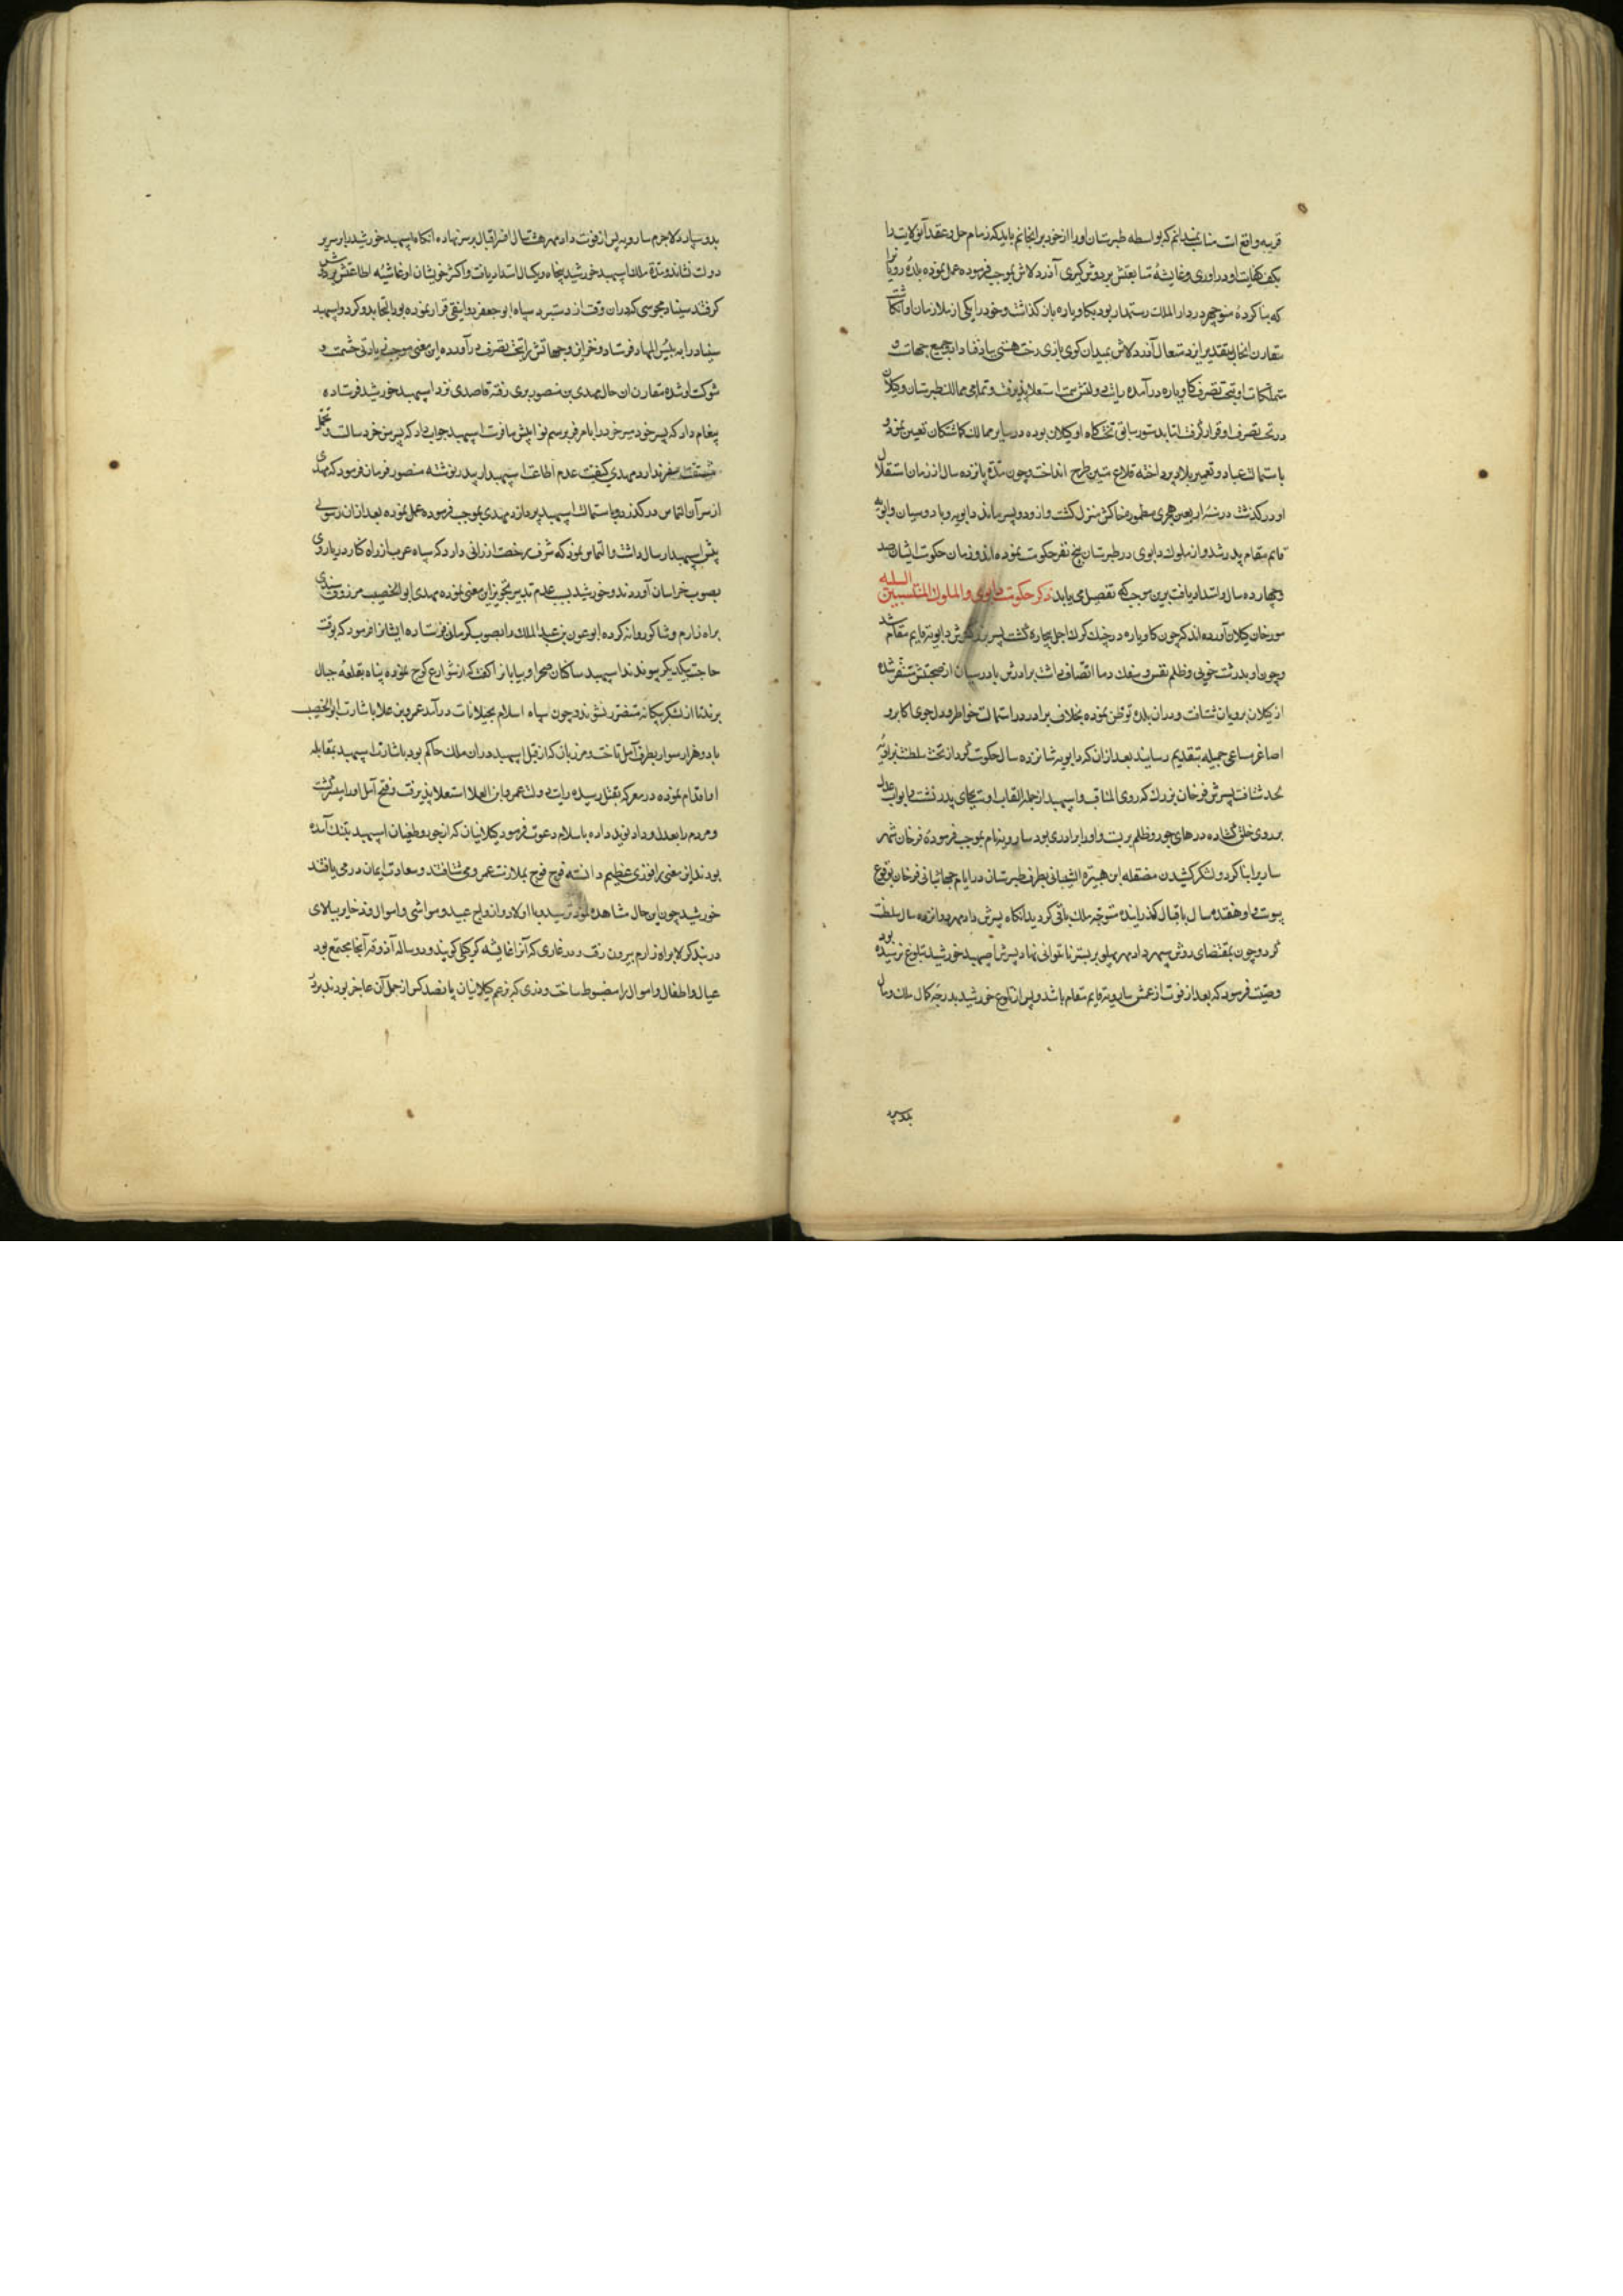 قریبه واقع است مناسب نمیدانم که بواسطه طبرستان او را از خود برنجانم باید که زمام حل و عقد آنولایت را
بکف کفایت او در اوری و غاشیهٔ متابعتش بر دوش گیری آذر ولاش بموجب فرموده عمل نموده بلدهٔ رویانرا
که بنا کردهٔ منوچهر در دار الملک رستمدار بود بکاوباره باز کذاشت و خود را یکی از ملازمان او انکاشت
مقارن انحال بتقدیر ایزد متعال آذر ولاش بمیدان کوی بازی رخت هستی بباد فنا داد جمیع جهات و
متملکات او بتحت تصرف کاوباره درآمده رایت دولتش سمت استعلا پذیرفت و تمامی ممالک طبرستان و کیلان
در تحت تصرف او قرار گرفت اما بدستور سابق تختکاه او کیلان بوده در سایر ممالک کماشتکان تعیین نمود و
باستمالت عباد و تعمیر بلاد پرداخته قلاع متین طرح انداخت و چون مدة پانزده سال از زمان استقلال
او درکذشت در سنه اربعین هجری مطموره خاکش منزل کشت و ازو دو پسر ماند دابویه و بادوسبان و دابویه
قایم مقام پدر شد و از ملوک دابوی در طبرستان پنج نفر حکومت نموده اند و زمان حکومت ایشان صد
و چهارده سال امتداد یافت برین موجب که تفصیل می یابد ذکر حکومت دابوی و الملوک المنتسبین الیه
مورخان کیلان آورده اند که چون کاوباره در چنک کرک اجل بیچاره کشت پسر بزرکترش دابویه قایم مقام شد
و چون او بدرشت خویی و ظلم نفس و سفک دما اتصاف داشت برادرش بادوسبان از صحبتش متنفر شده
از کیلان برویان شتافت و در ان بلده توطن نموده بخلاف برادر در استمالت خواطر و دلجوی اکابر و
اصاغر مساعی جمیله بتقدیم رسانید بعد از ان که دابویه شانزده سال حکومت کرد از تخت سلطنت بزاویه
لحد شتافت پسرش فرخان بزرک که ذوی المناقب و اسپهبد از جمله القاب اوست بجای پدر نشست و ابواب عدل
بر روی خلق کشاده درهای جور و ظلم بربست و او را برادری بود سارویه نام بموجب فرمودهٔ فرخان شهر
ساریرا بنا کرد و لشکر کشیدن مصقله ابن هبیرة الشیبانی بطرف طبرستان در ایام جهانبانی فرخان بوقوع
پیوست و او هفده سال باقبال کذرانیده متوجه ملک باقی کردید انکاه پسرش دادمهر دوانزده سال سلطنت
کرد و چون بمقتضای روش سپهر دادمهر پهلو بر بستر ناتوانی نهاد پسرش اصپهبد خورشید ببلوغ نرسیده بود
وصیت فرمود که بعد از فوت از عمش سارویه قایم مقام باشد و پس از بلوغ خورشید بدرجه کمال ملک و مال
بدو سپارد
بدو سپارد لاجرم سارویه پس از فوت دادمهر هشت سال افسر اقبال بر سر نهاده انکاه اسپهبد خورشید را بر سریر
دولت نشاند و مدة ملک اسپهبد خورشید پنجاه و یکسال امتداد یافت و اکثر خویشان او غاشیه اطاعتش بر دوش
کرفتند سنباد مجوسی که در ان وقت از دستبرد سپاه ابو جعفر دوانیقی فرار نموده بود التجا بدو کرد و اسپهبد
سنباد را به بئس المهاد فرستاد و خزاین و جهاتش را بتحت تصرف درآورده این معنی موجب زیادتی حشمت و
شوکت او شده مقارن ان حال مهدی بن منصور بری رفته قاصدی نزد اسپهبد خورشید فرستاده
پیغام داد که پسر خود هرمز خود را بما مرفر برسم نوا پیش ما فرست اسپهبد جواب داد که پسر من خرد سالست و تحمل
مشقت سفر ندارد مهدی کیفیت عدم اطاعت اسپهبد را بپدر نوشته منصور فرمان فرمود که مهدی
از سر آن التماس درکذرد و باستمالت اسپهبد پردازد مهدی بموجب فرموده عمل نموده بعد از ان رسولی
پیش اسپهبد ارسال داشت و التماس نمود که شرف رخصت ارزانی دارد که سپاه عرب از راه کنار دریا روی
بصوب خراسان آورند و خورشید بسبب عدم تدبیر تجویز این معنی نموده مهدی ابو الخصیب مرزوق سندی
براه زارم و شاکو روانه کرده ابو عون بن عبد الملک را بصوب کرکان فرستاده ایشانرا فرمود که بوقت
حاجت بیکدیکر پیوندند اسپهبد ساکنان صحرا و بیابانرا کفت که از شوارع کوچ نموده پناه بقلعه جبال
برند تا از لشکر بیکانه متضرر نشوند و چون سپاه اسلام بجیلانات درآمد عمرو بن علا باشارت ابو الخصیب
با دو هزار سوار بطرف آمل تاخت و مرزبان که از قبل اسپهبد در ان ملک حاکم بود باشارت اسپهبد بمقابله
او اقدام نموده در معرکه بقتل رسیده رایت دولت عمرو بن العلا استعلا پذیرفت و فتح آمل او را میسر کشت
و مردم را بعدل و داد نوید داده باسلام دعوت فرمود کیلانیان که از جور و طغیان اسپهبد بتنک آمده
بودند این معنی را فوزی عظیم دانسته فوج فوج بملازمت عمرو می شتافتند و سعادت ایمان در می یافتند
خورشید چون این حال مشاهده نمود ترسید و با اولاد و ازواج عبید و مواشی و اموال و ذخایر ببالای
دربند کولا براه زارم بیرون رفت و در غاری که آنرا عایشه کرکیلی کویند و دو ساله آذوقه آنجا مجتمع بود
عیال و اطفال و اموال را مضبوط ساخت و دری که بزعم کیلانیان پانصد کس از حمل آن عاجز بودند بر در